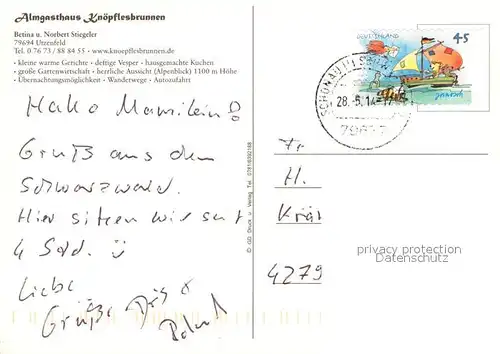 Almgasthaus Knöpflesbrunnen
Betina u. Norbert Stiegeler
79694 Utzenfeld
Tel. 0 76 73 / 88 84 55 ~ www.knoepflesbrunnen.de
· kleine warme Gerichte · deftige Vesper · hausgemachte Kuchen
· große Gartenwirtschaft · herrliche Aussicht (Alpenblick) 1100 m Höhe
· Übernachtungsmöglichkeit · Wanderwege · Autozufahrt
Hallo
Gruß aus dem
Schwarzwald.
Hier sitzen wir seit
4 Std. ü
Liebe
Grüße
© GD Druck u. Verlag Tel.
DEUTSCHLAND
45
janosch
SCHÖNAU
28.-5.14
Fr.
H.
4279
privacy protection
Datenschutz